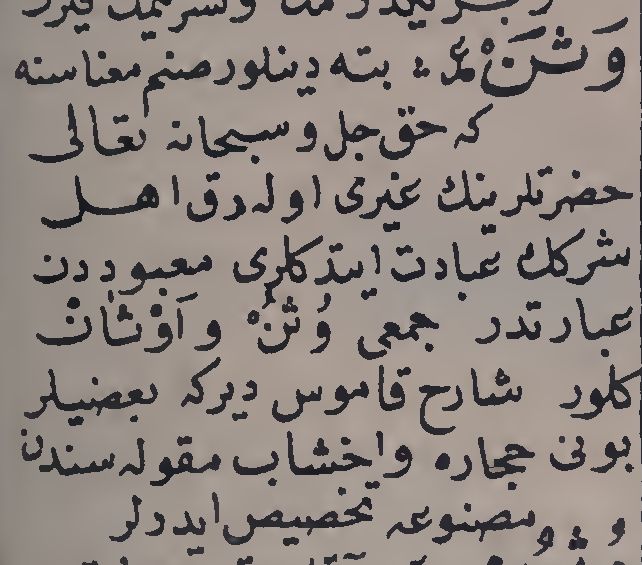 وَثَنْ ع : بته دینلور صنم معناسنه
که حق جل و سبحانه تعالی
حضرتلرینك غیری اوله رق اهل
شرکك عبادت ایتدکلری معبوددن
عبارتدر جمعی وُثُنْ و اَوْثَانْ
کلور شارح قاموس دیرکه بعضیلر
بونی حجاره و اخشاب مقوله سندن
مصنوعه تخصیص ایدرلر